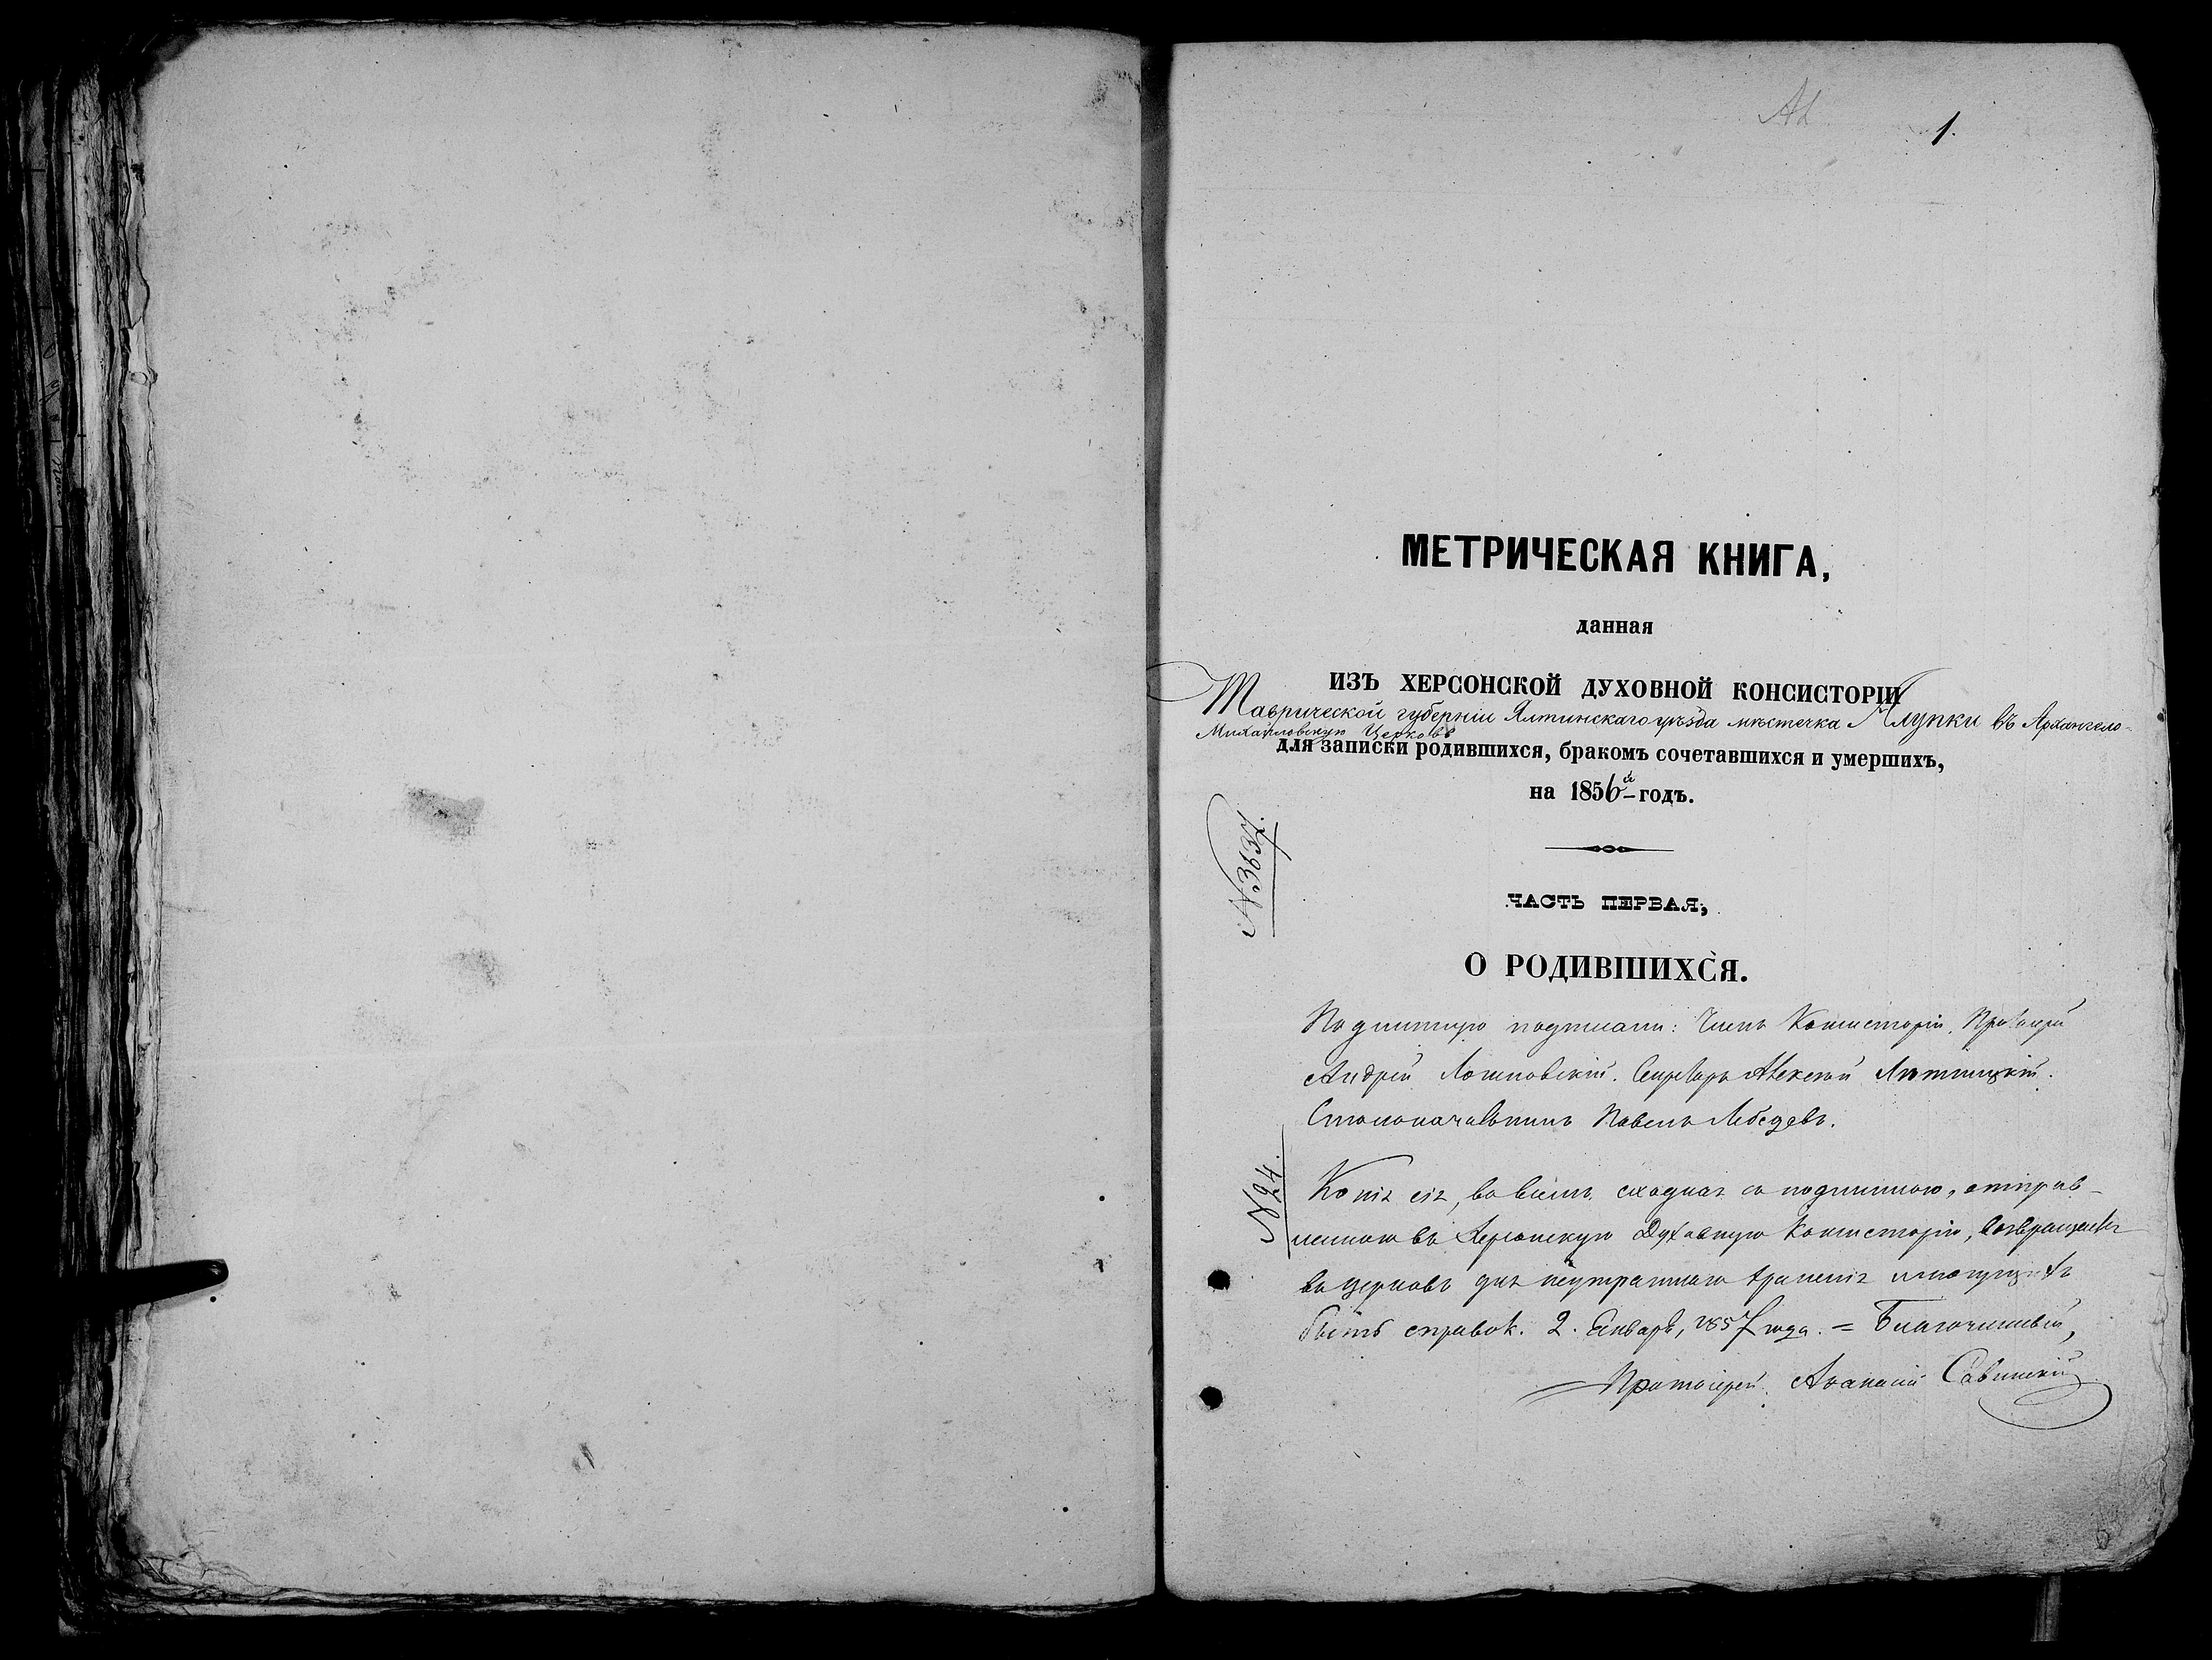 1.
МЕТРИЧЕСКАЯ КНИГА,
данная
ИЗЪ ХЕРСОНСКОЙ ДУХОВНОЙ КОНСИСТОРІИ
Таврической губерніи Ялтинскаго уѣзда мѣстечка Алупки въ Архангело-
Михайловскую Церковь
для записки родившихся, бракомъ сочетавшихся и умершихъ,
на 1856й годъ.
N 3637.
ЧАСТЬ ПЕРВАЯ,
О РОДИВШИХСЯ.
подписали: Членъ Консисторіи, Протоіерей
Андрей Логиновскій. Секретарь Алексѣй
Столоначальникъ Павелъ Лебедевъ.
N 24.
Копія сія, во всемъ сходная съ подлинною, отправ-
ленною въ Херсонскую Духовную Консисторію, возвращается
въ церковь для храненія и могущихъ
быть справок. 2. Января, 1857 года. = Благочинный,
Протоіерей Аѳанасій Савинскій